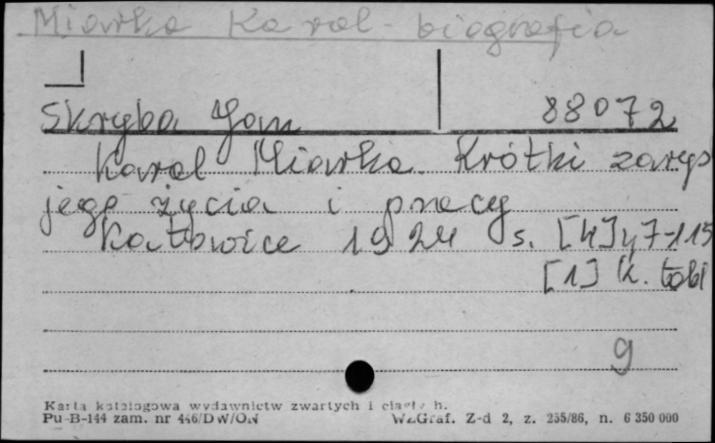 Miarka Karol - biografia
Skryba Jan 88072
Karol Miarka. Krótki zarys
jego życia i pracy
Katowice 1924 s. [4], 7-115
[1] k. tabl
9
Karta katalogowa wydawnictw zwartych i ciągły h.
Pu-B-144 zam. nr 446/DW/ON WZGraf. Z-d 2, z. 235/86, n. 6 350 000